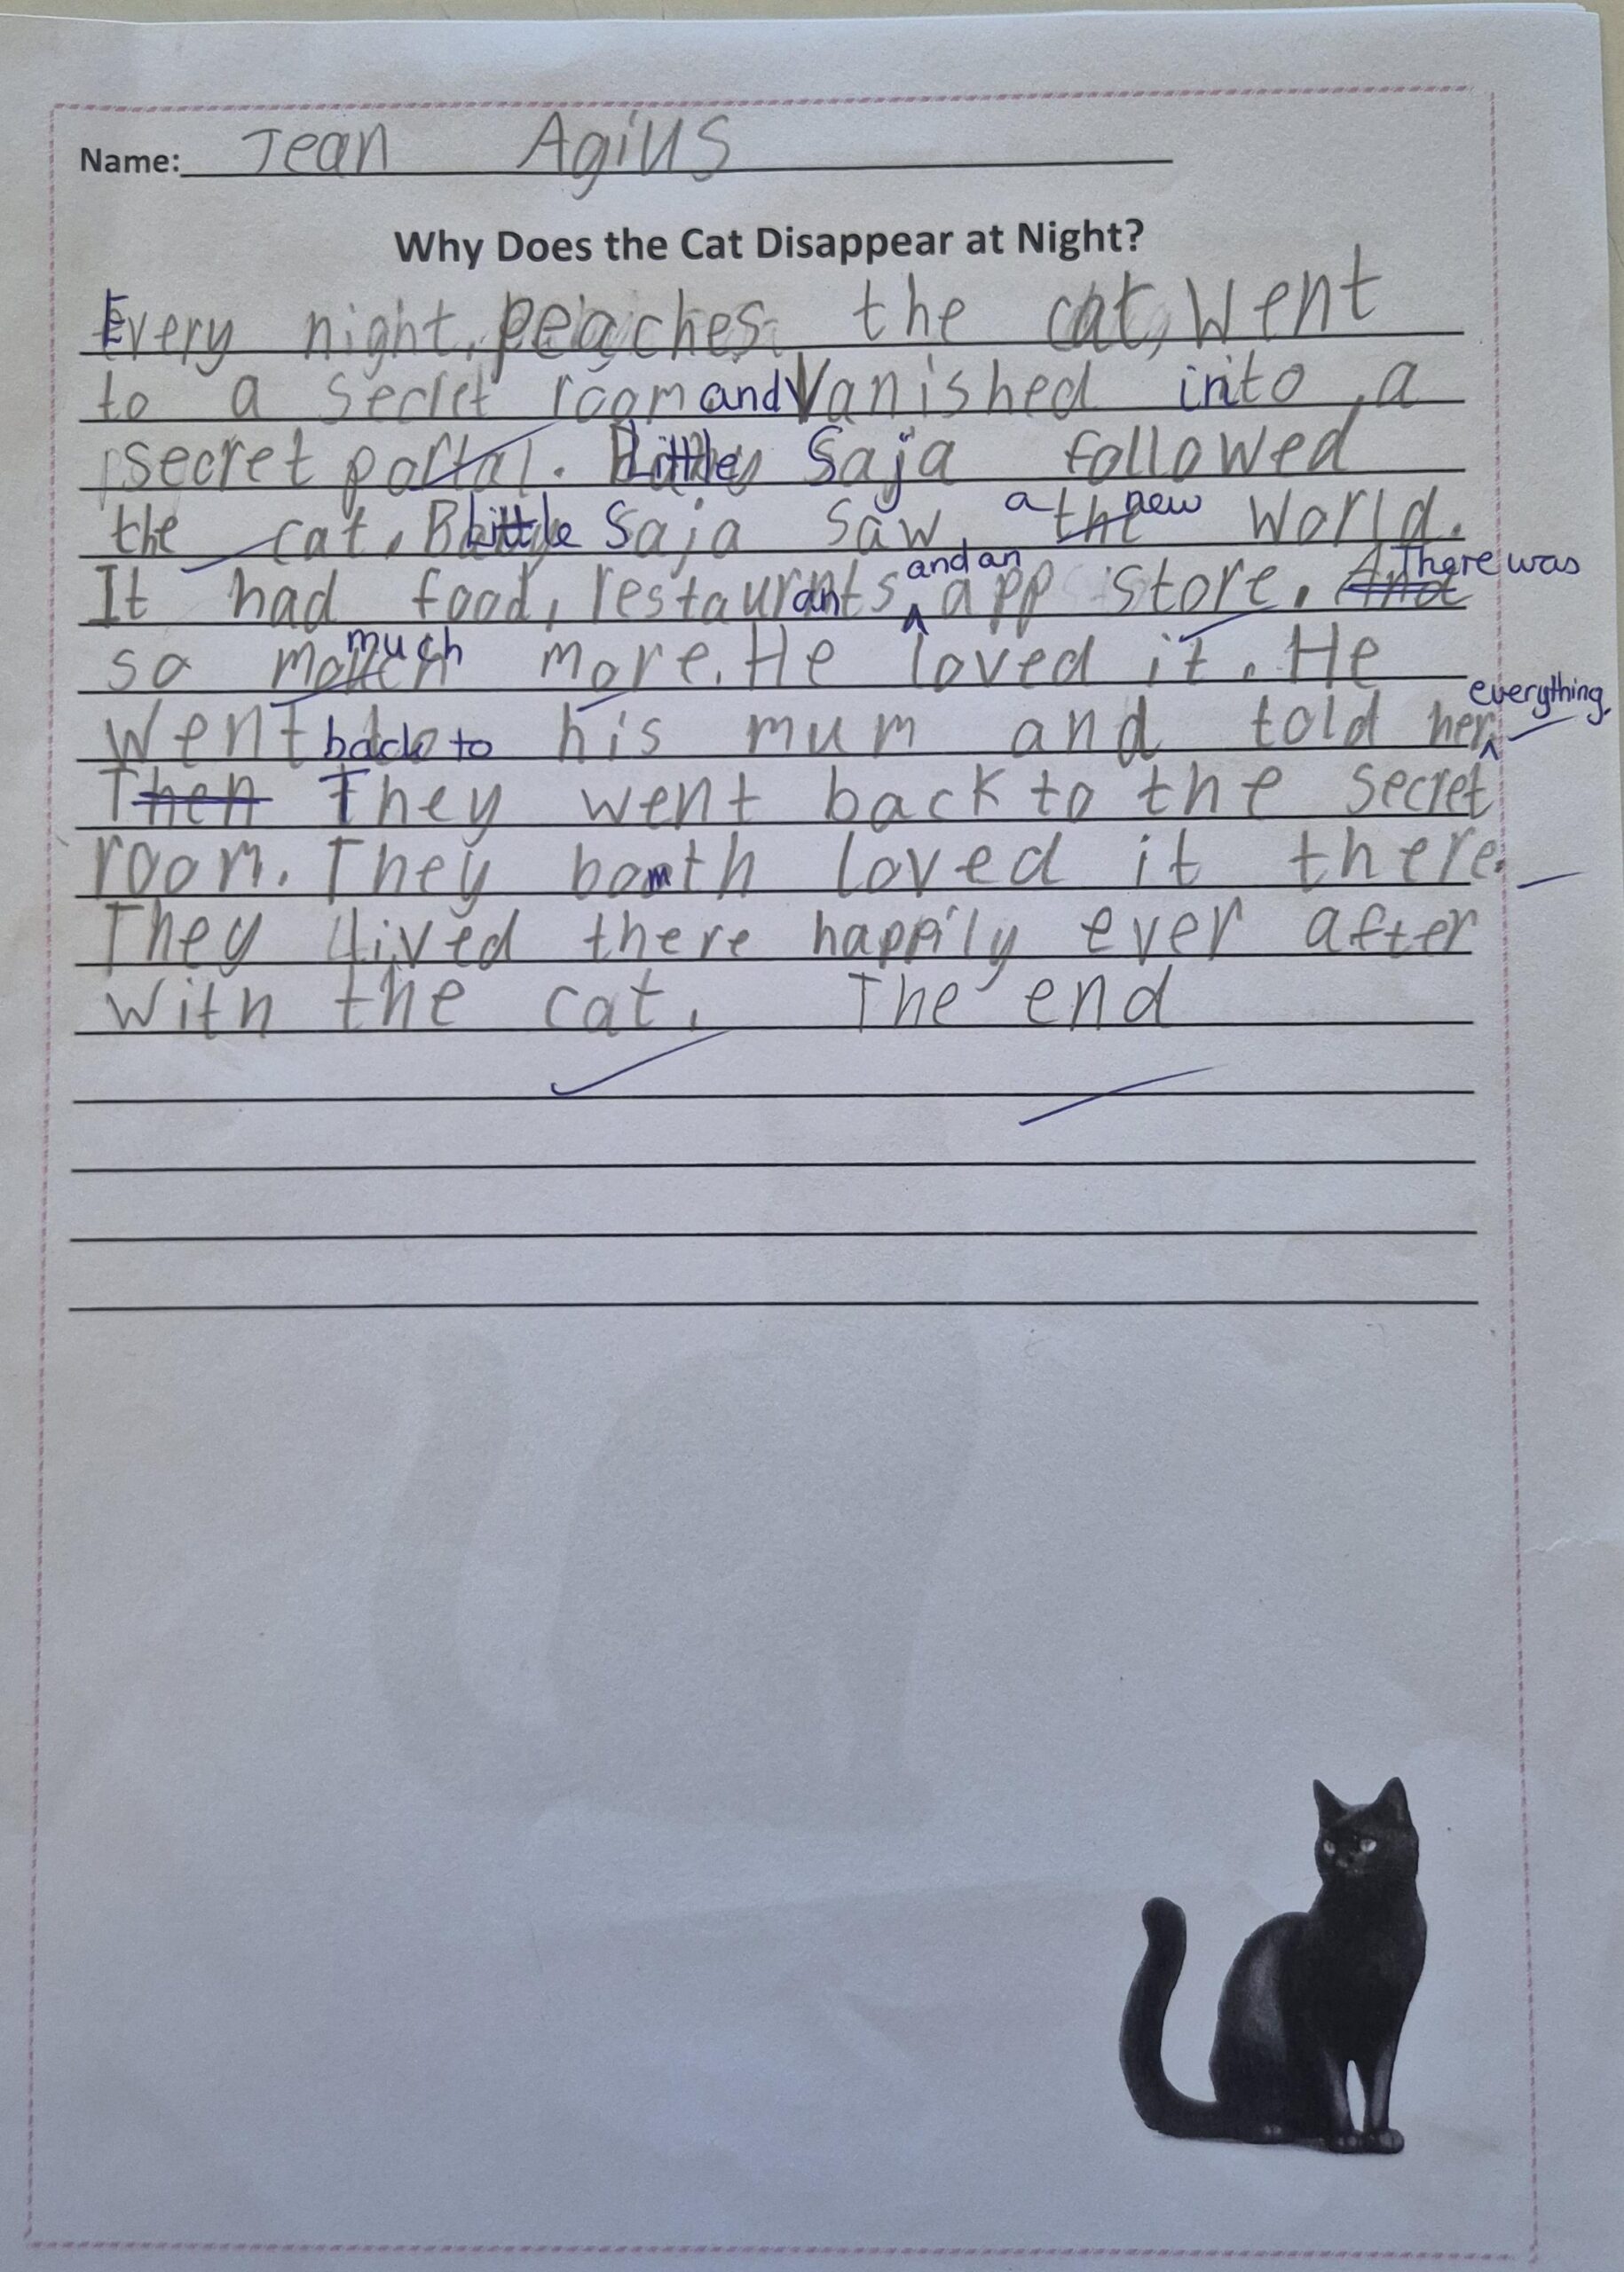 Name: Jean Agius
Why Does the Cat Disappear at Night?
Every night, peaches the cat, went
to a secret room and Vanished into a
secret portal. Little Saja followed
the cat. Little Saja saw a new world.
It had food, restaurants and an app store. There was
so much more. He loved it. He
went back to his mum and told her everything.
Then They went back to the secret
room. They both loved it there.
They lived there happily ever after
with the cat. The end